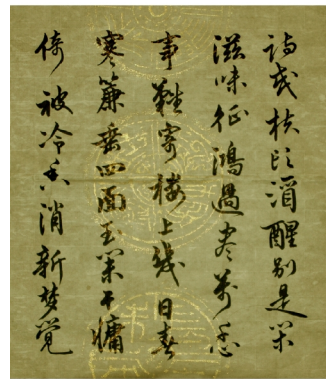 诗成扶頭酒醒別是閑
滋味征鴻過盡萬千心
事難寄樓上幾日春
寒簾垂四面玉闌干慵
倚被冷香消新夢覺